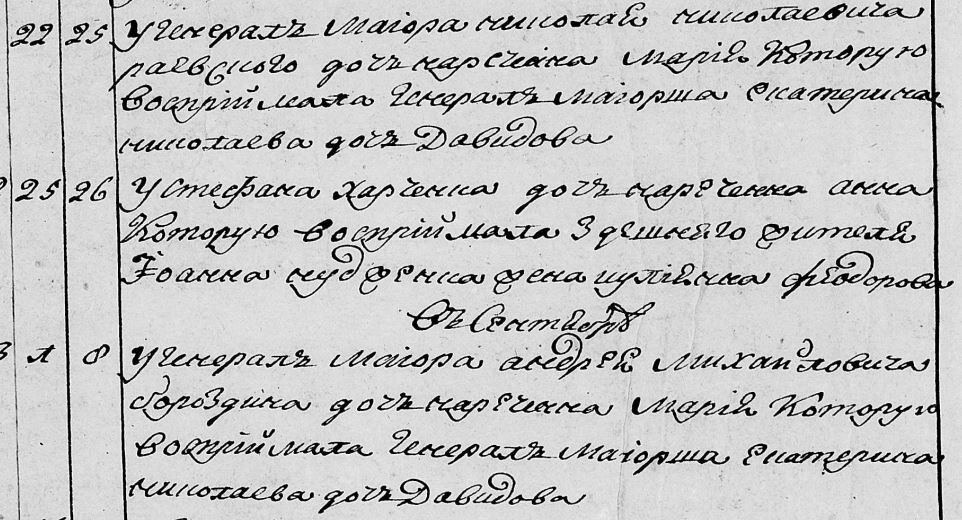 22 25 У Генералъ Маіора николая николаевича
раевского дочь наречена Марія Которую
воспріймала Генералъ Маіорша Екатерина
николаева дочъ Давидова
25 26 У Стефана харченка дочъ нареченна анна
Которую воспріймала здешнего жителя
Іоанна жена иуліянна феодорова
въ Сентябрѣ
8 У Генералъ Маіора андрея Михайловича
бороздина дочъ нареченна Марія Которую
воспріймала Генералъ Маіорша Екатерина
николаева дочъ Давидова